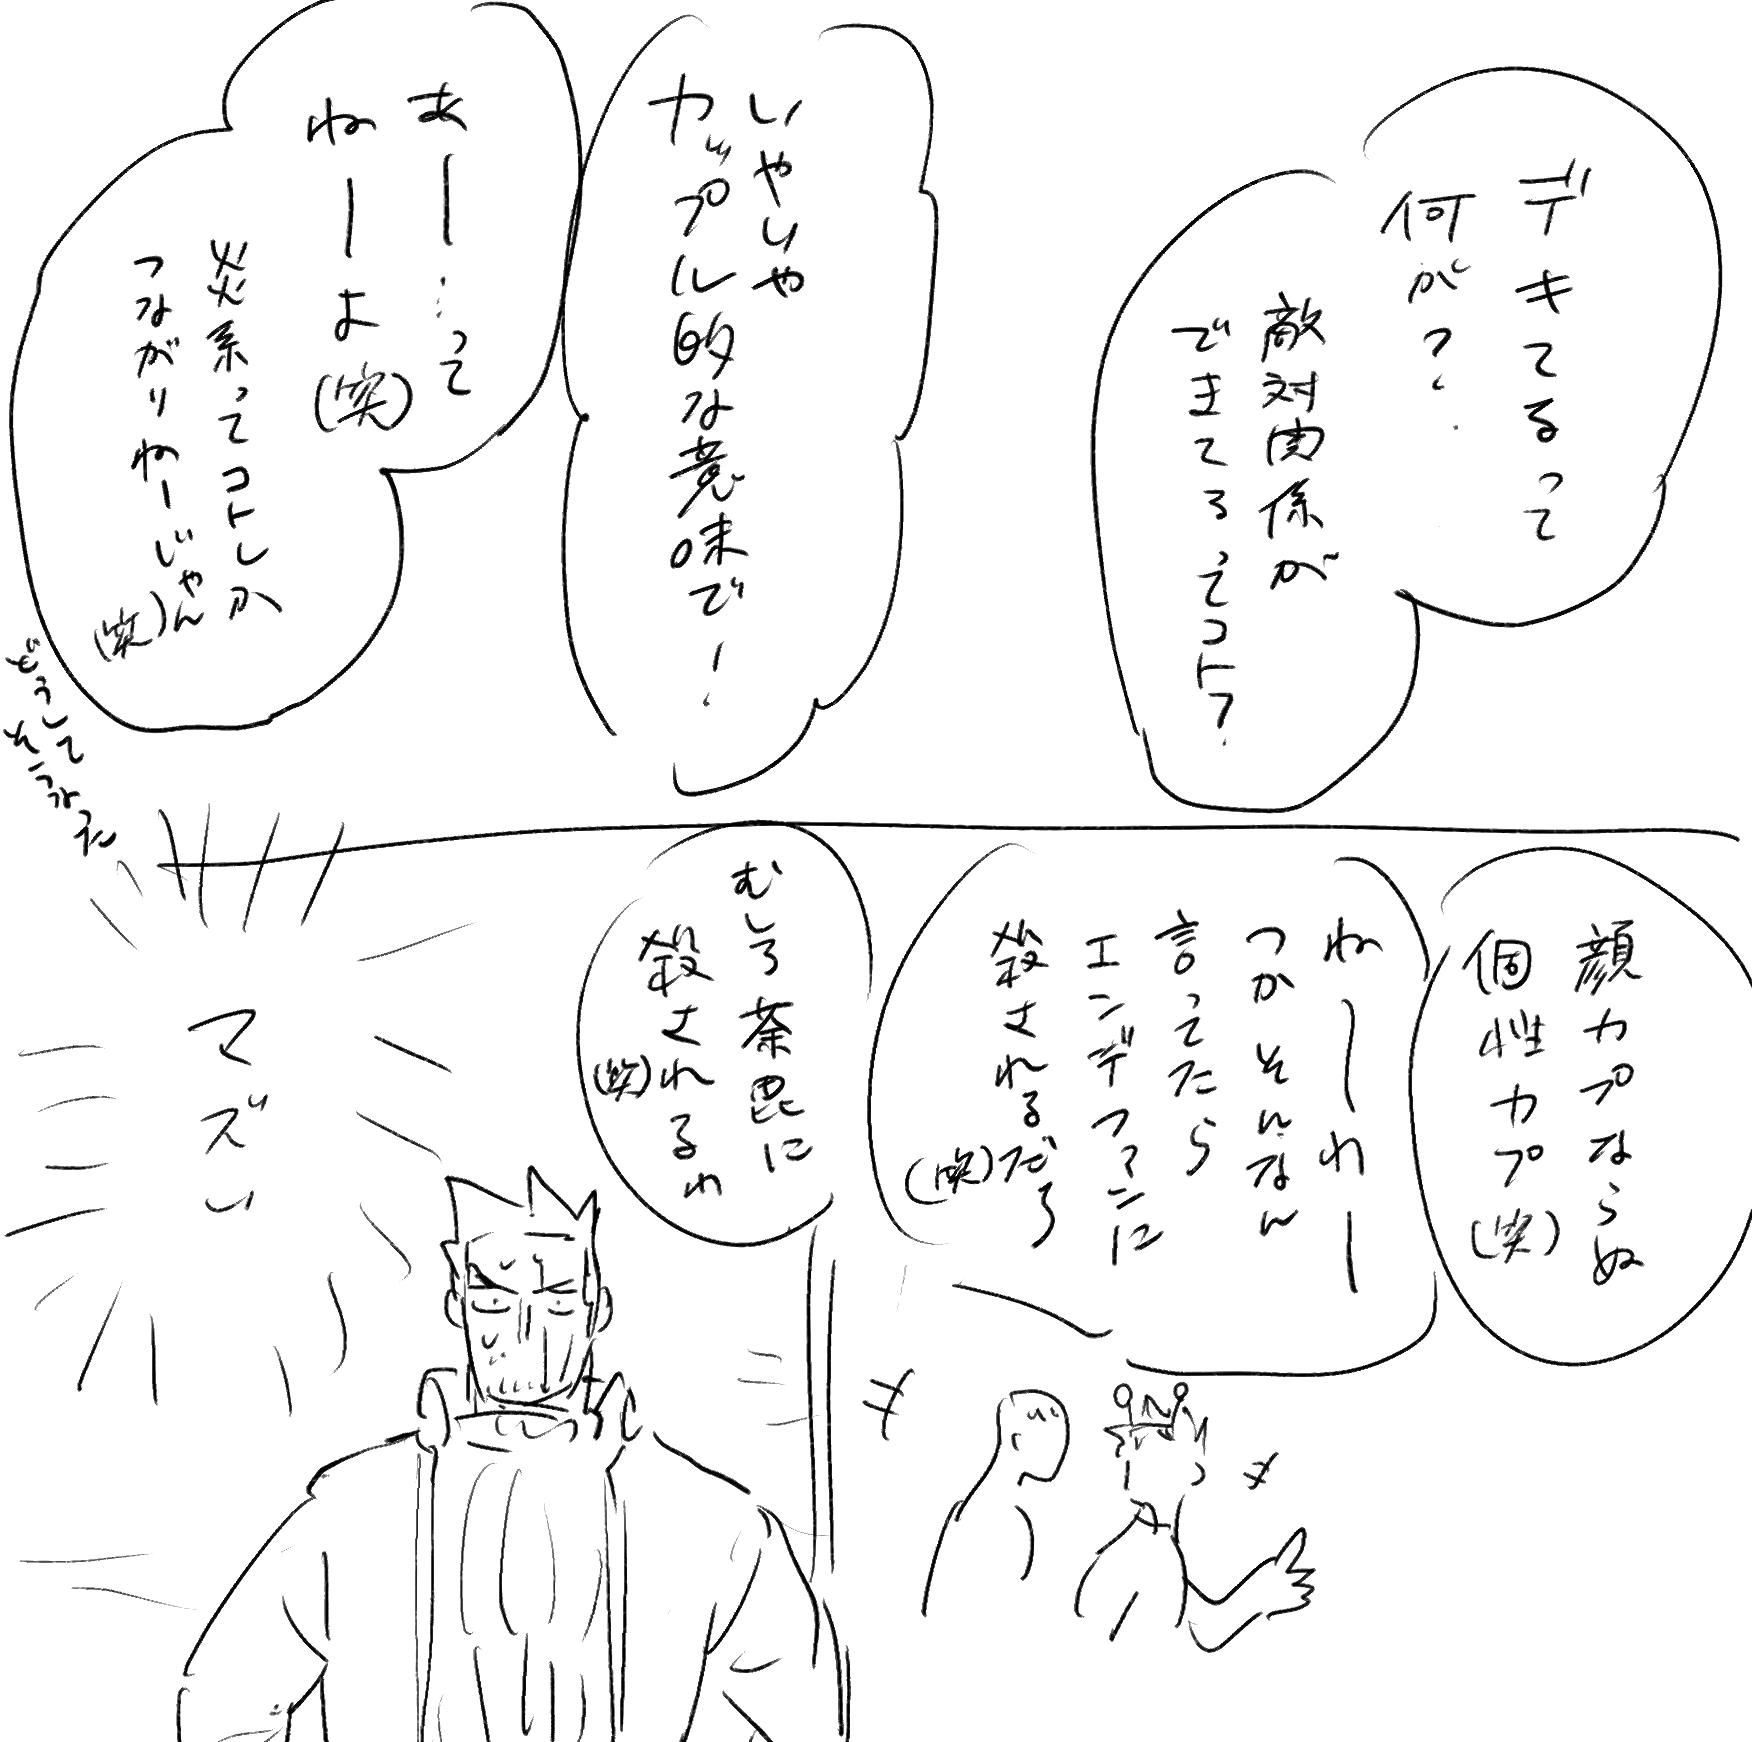 デキてるって
何が?
敵対関係が
できてるってコト?
いやいや
カップル的な意味で!
あー…って
ねーよ(笑)
炎系ってコトしか
つながりねーじゃん(笑)
どうして
そうなった
顔カプならぬ
個性カプ(笑)
ねーわー
つかそんなん
言ってたら
エンデファンに
殺されるだろ(笑)
むしろ荼毘に
殺されるわ(笑)
マズい